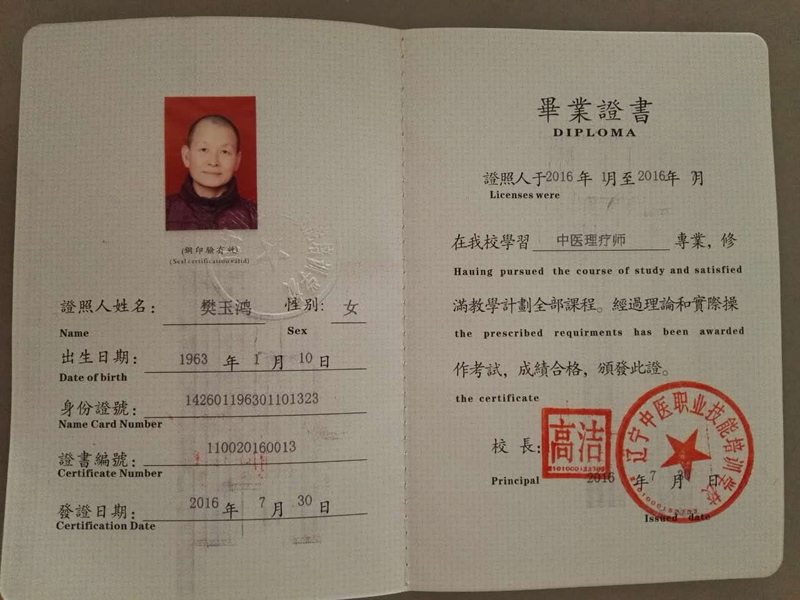 (鋼印驗有效)
(Seal certification valid)
證照人姓名：樊玉鸿 性別：女
Name Sex
出生日期：1963年1月10日
Date of birth
身份證號：142601196301101323
Name Card Number
證書編號：110020160013
Certificate Number
發證日期：2016年7月30日
Certification Date
畢業證書
DIPLOMA
證照人于2016年1月至2016年7月
Licenses were
在我校學習 中医理疗师 專業，修
Hauing pursued the course of study and satisfied
滿教學計劃全部課程。經過理論和實際操
the prescribed requirments has been awarded
作考試，成績合格，頒發此證。
the certificate
校長：高洁
Principal
2016年7月30日
Issued date
辽宁中医职业技能培训学校